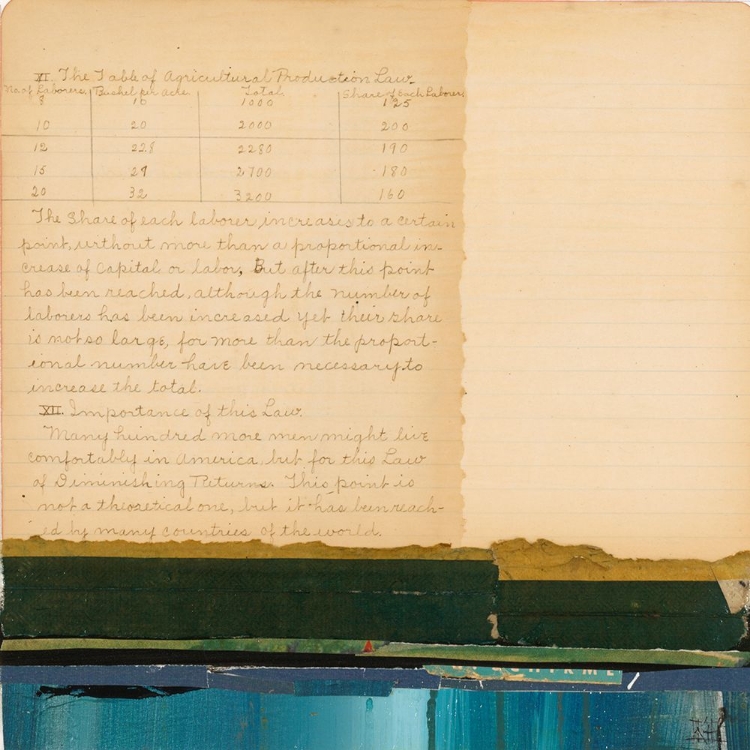 XI. The Table of Agricultural Production Law.
No of Laborers Bushel per acre Total Share of each Laborer
8 16 1000 125
10 20 2000 200
12 22.8 2280 190
15 27 2700 180
20 32 3200 160
The Share of each laborer increases to a certain
point, without more than a proportional in-
crease of Capital or labor, But after this point
has been reached, although the number of
laborers has been increased yet their share
is not so large, for more than the proport-
ional number have been necessary to
increase the total.
XII. Importance of this Law.
Many hundred more men might live
comfortably in America, but for this Law
of Diminishing Returns. This point is
not a theoretical one, but it has been reach-
ed by many countries of the world.